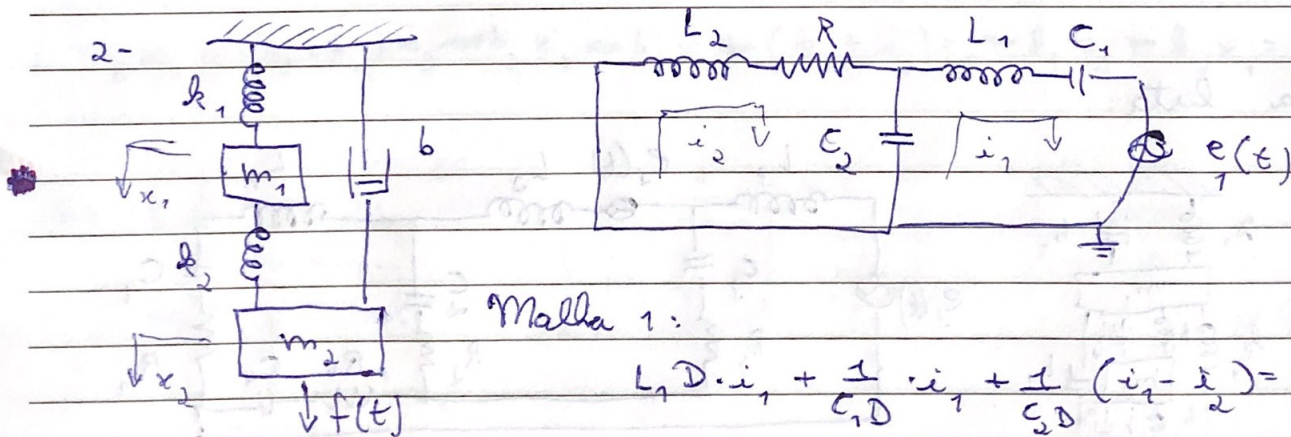 2-
k₁
m₁
x₁
b
k₂
m₂
x₂
f(t)
L₂ R L₁ C₁
i₂ C₂ i₁ e₁(t)
Malha 1:
L₁D·i₁ + 1/(C₁D)·i₁ + 1/(C₂D) (i₁ - i₂) =